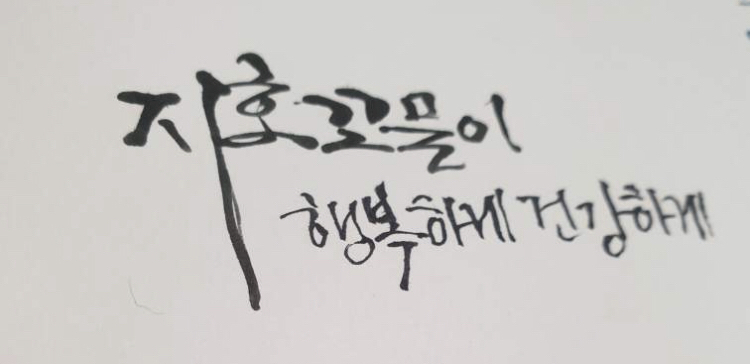 지호꼬물이
행복하게 건강하게